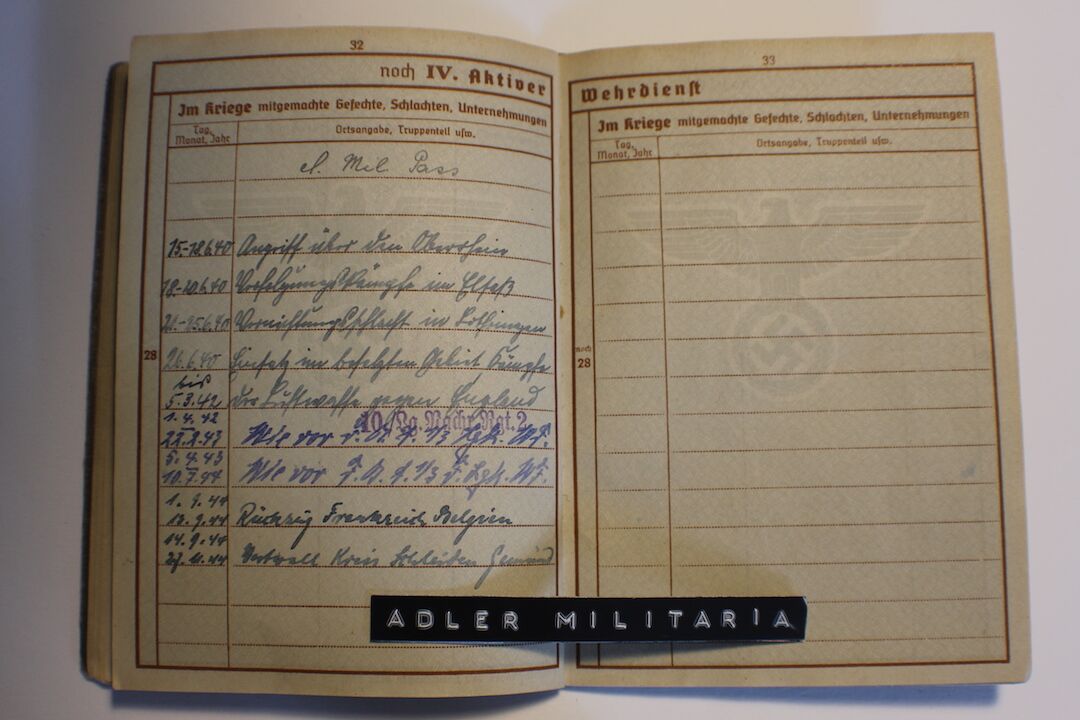 32
noch IV. Aktiver
Im Kriege mitgemachte Gefechte, Schlachten, Unternehmungen
Tag, Monat, Jahr
Ortsangabe, Truppenteil usw.
Mil. Pass
15.-18.6.40 Angriff über den Oberrhein
Verfolgungskämpfe im Elsaß
Vernichtungsschlacht in Lothringen
28
26.6.40 Einsatz im besetzten Gebiet Kämpfe
bis
5.3.42 der Luftwaffe gegen England
1.4.42
10./Lg. Nachr. Rgt. 2
22.2.43 Wie vor
5.4.43
10.7.44 Wie vor
1.9.44
13.9.44 Rückzug Frankreich Belgien
14.9.44
27.11.44 Westwall Kreis Schleiden Gemünd
33
Wehrdienst
Im Kriege mitgemachte Gefechte, Schlachten, Unternehmungen
Tag, Monat, Jahr
Ortsangabe, Truppenteil usw.
noch
28
ADLER MILITARIA